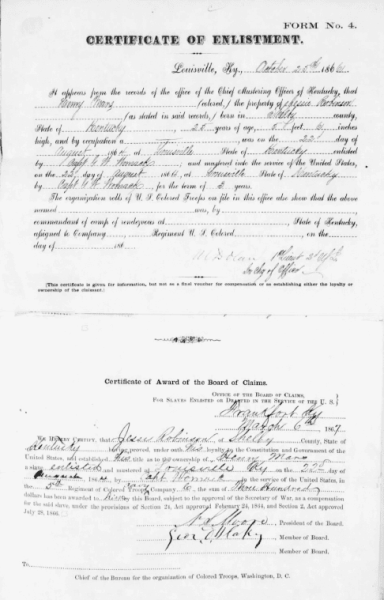 FORM No. 4.
CERTIFICATE OF ENLISTMENT.
Louisville, Ky., October 25th 1866
It appears from the records of the office of the Chief Mustering Officer of Kentucky, that
Henry (colored,) the property of Jesse Robinson
(as stated in said records,) born in Shelby county,
State of Kentucky, 22 years of age, 5 feet 6 inches
high, and by occupation a was, on the 22d
August 1864 at Louisville State of Kentucky enlisted
by Capt and mustered into the service of the United States,
on the 22d of August 1864, at Louisville State of Kentucky
by Capt for the term of 3 years.
The organization rolls of U. S. Colored Troops on file in this office also show that the above
named was, by
commandant of camp of rendezvous at , State of Kentucky,
assigned to Company Regiment U. S. Colored on the
day of 186
Lieut
In chg of Office
(This certificate is given for information, but not as a final voucher for compensation or as establishing either the loyalty or
ownership of the claimant.)
Certificate of Award of the Board of Claims.
OFFICE OF THE BOARD OF CLAIMS,
FOR SLAVES ENLISTED OR DRAFTED IN THE SERVICE OF THE U. S.
Frankfort Ky
March 6th 1867
WE HEREBY CERTIFY, that Jesse Robinson of Shelby County, State of
Kentucky having proved, under oath, his loyalty to the Constitution and Government of the
United States, and established his title as to the ownership of
a slave enlisted and mustered at Louisville Ky on the 22d day of
1864 by Capt to the service of the United States, in
the 5th Regiment of Colored Company to the sum of Three Hundred
dollars has been awarded to him by this Board, subject to the approval of the Secretary of War, as a compensation
for the said slave, under the provisions of Section 24, Act approved February 24, 1864, and Section 2, Act approved
July 28, 1866.
President of the Board.
Member of Board.
Member of Board.
To
Chief of the Bureau for the organization of Colored Troops, Washington, D. C.